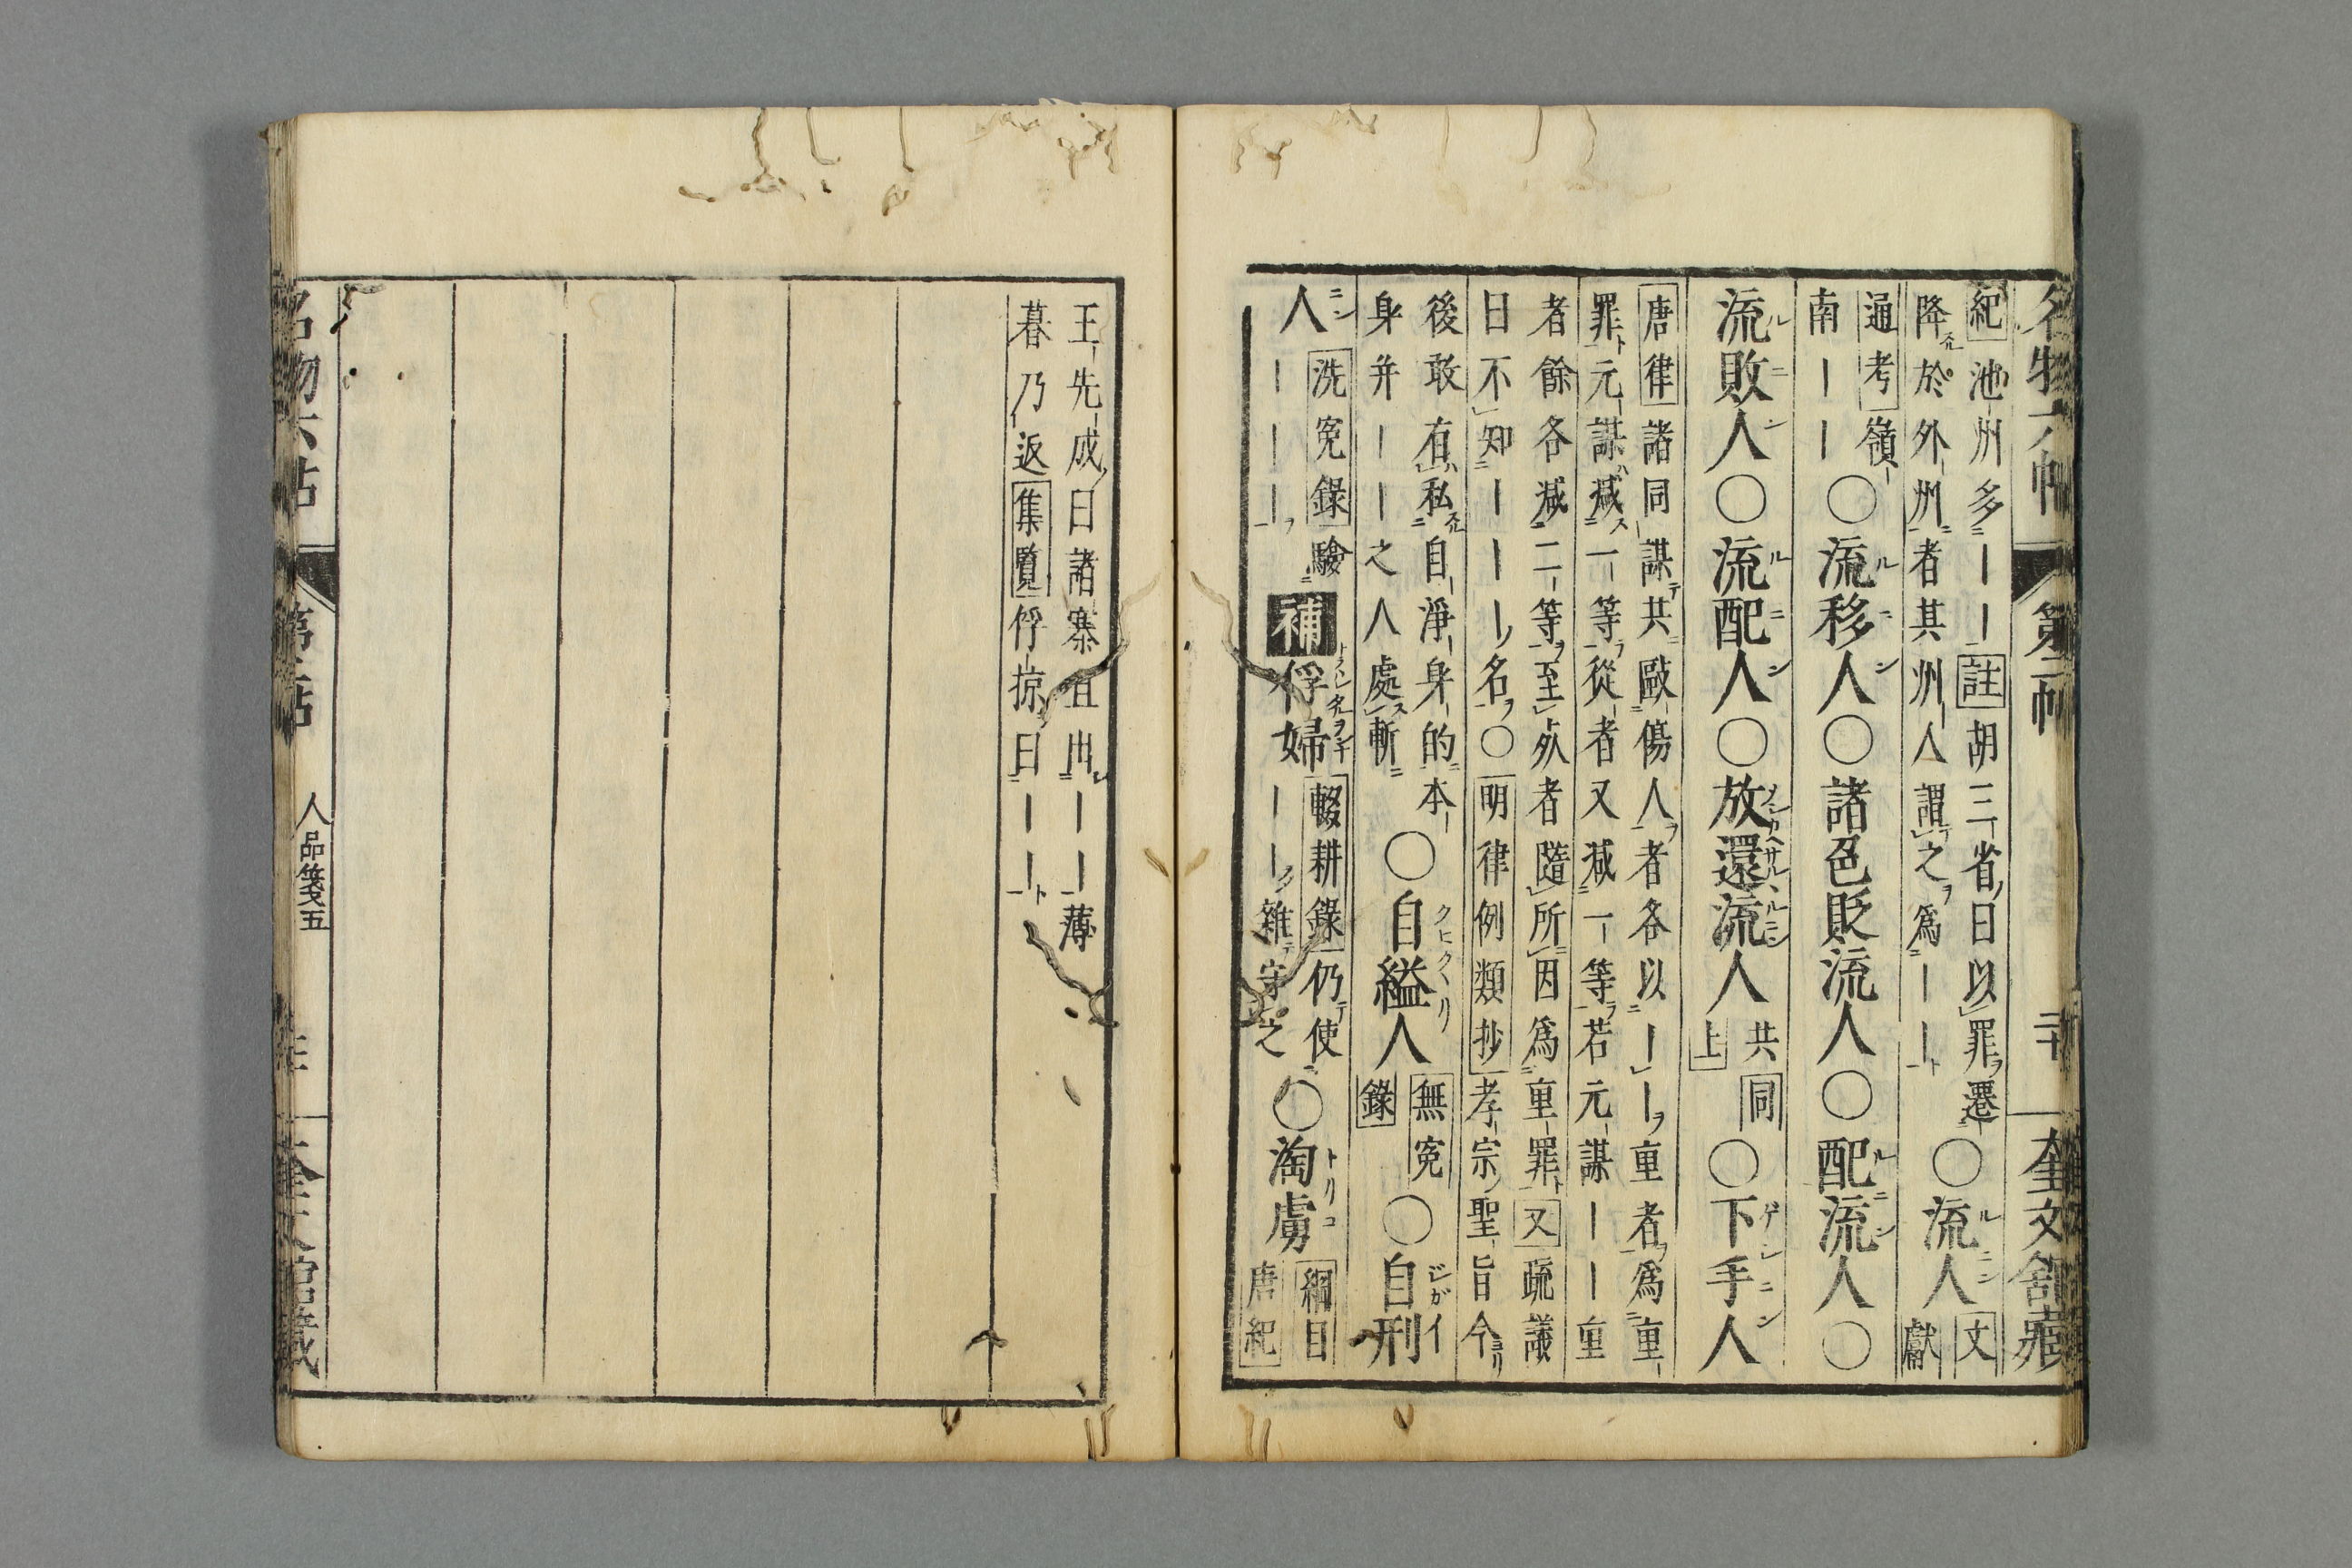 名物六帖 第二帖 二十 奎文舘藏
紀池州多ーー註胡三省曰以罪遷
降於外州者其州人謂之爲ーー
○流人
文
獻
通考嶺
南ーー
○流移人○諸色貶流人○配流人○
流敗人○流配人○放還流人
共同
上
○下手人
唐律諸同謀共毆傷人者各以ーー重者爲重
罪元謀減一等從者又減一等若元謀ーー重
者餘各減二等至死者隨所因爲重罪又疏議
曰不知ーーー名○明律例類抄孝宗聖旨今
後敢有私自淨身的本
身并ーー之人處斬
○自縊人
無冤
錄
○自刑
人
洗冤錄驗
ーーー
補俘婦
輟耕錄仍使
ーー雜守之
○淘虜
綱目
唐紀
王先成曰諸寨旦出ーー薄
暮乃返集覧俘掠曰ーー
名物六帖 第二帖 人品箋五 奎文舘藏